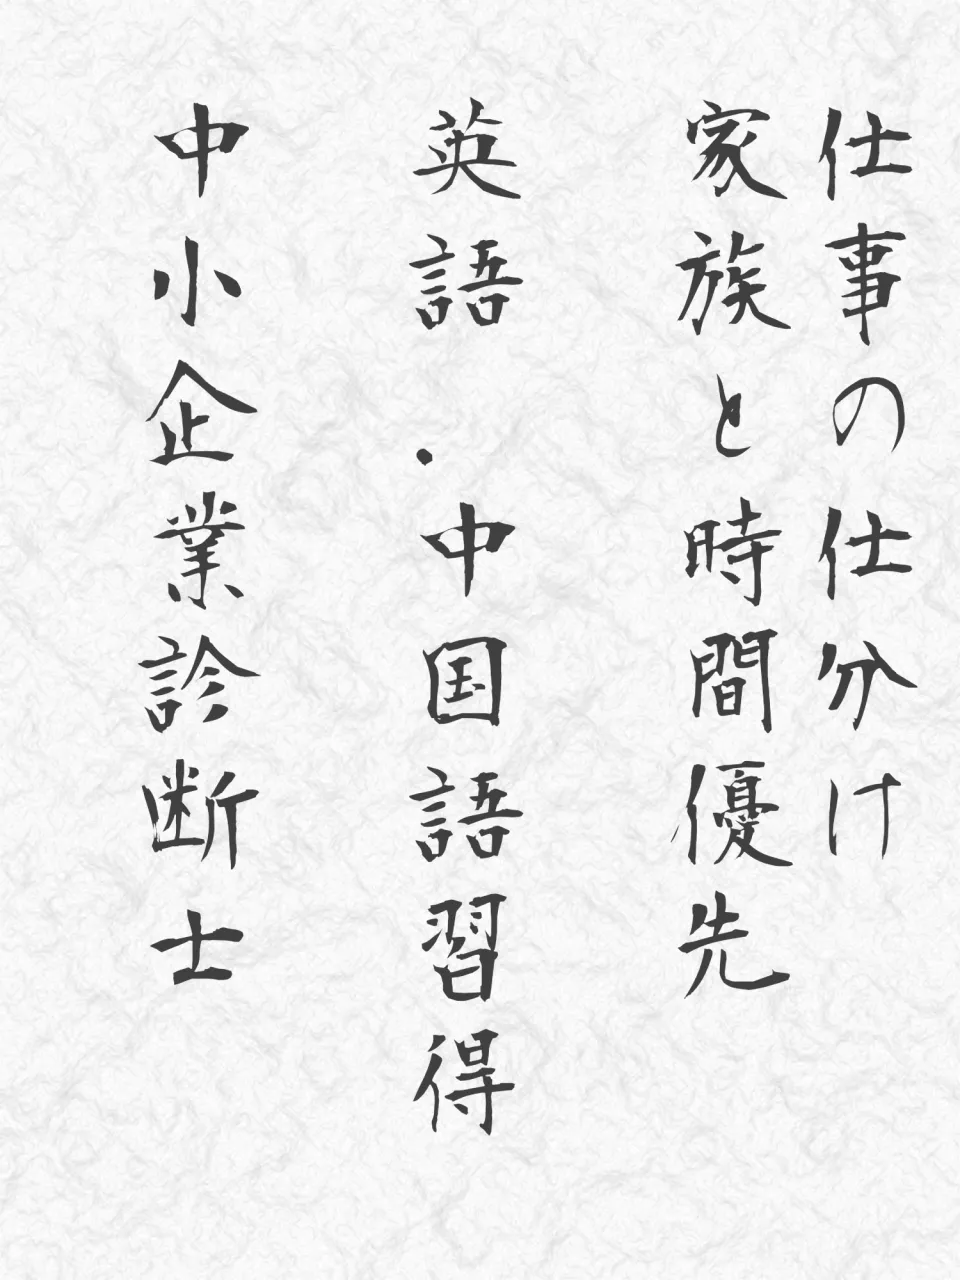 仕事の仕分け
家族と時間優先
英語・中国語習得
中小企業診断士